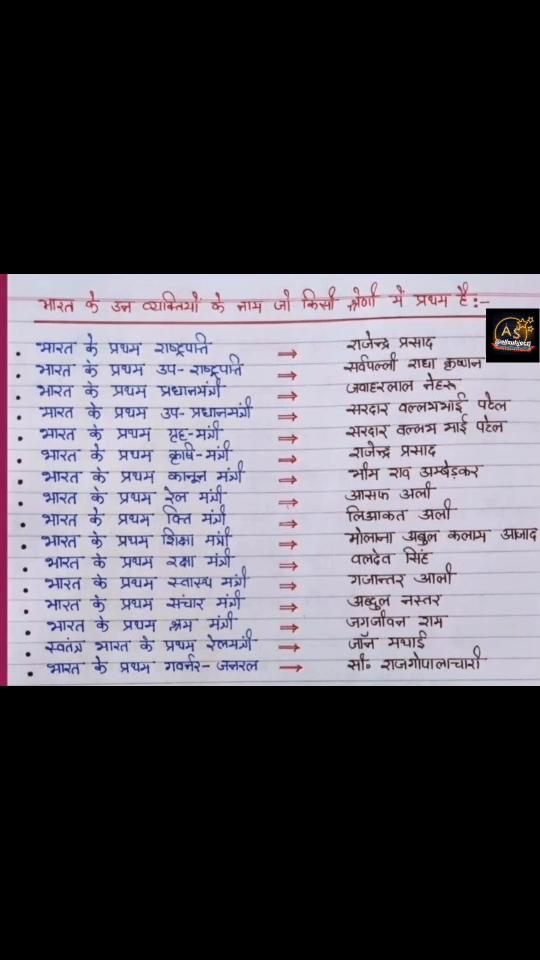 भारत के उन व्यक्तियों के नाम जो किसी श्रेणी में प्रथम है :-
AS
• भारत के प्रथम राष्ट्रपति ⇒ राजेन्द्र प्रसाद
• भारत के प्रथम उप-राष्ट्रपति ⇒ सर्वपल्ली राधा कृष्णन
• भारत के प्रथम प्रधानमंत्री ⇒ जवाहरलाल नेहरू
• भारत के प्रथम उप-प्रधानमंत्री ⇒ सरदार वल्लभभाई पटेल
• भारत के प्रथम गृह-मंत्री ⇒ सरदार वल्लभ भाई पटेल
• भारत के प्रथम कृषि-मंत्री ⇒ राजेन्द्र प्रसाद
• भारत के प्रथम कानून मंत्री ⇒ भीम राव अम्बेड़कर
• भारत के प्रथम रेल मंत्री ⇒ आसफ अली
• भारत के प्रथम वित्त मंत्री ⇒ लिआकत अली
• भारत के प्रथम शिक्षा मंत्री ⇒ मोलाना अबुल कलाम आजाद
• भारत के प्रथम रक्षा मंत्री ⇒ वलदेव सिंह
• भारत के प्रथम स्वास्थ मंत्री ⇒ गजान्तर आली
• भारत के प्रथम संचार मंत्री ⇒ अब्दुल नस्तर
• भारत के प्रथम श्रम मंत्री ⇒ जगजीवन राम
• स्वतंत्र भारत के प्रथम रेलमंत्री ⇒ जॉन मथाई
• भारत के प्रथम गवर्नर-जनरल ⇒ सी० राजगोपालाचारी